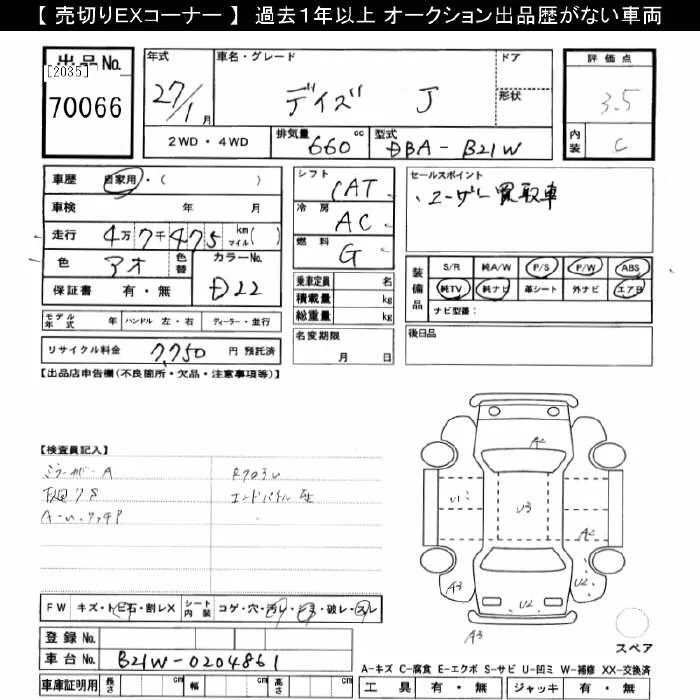 【 売切りEXコーナー 】 過去1年以上 オークション出品歴がない車両
出品No.
[2035]
70066
年式
27/1月
車名・グレード
デイズ J
ドア
形状
2WD・4WD
排気量 660cc
型式 DBA-B21W
評価点
3.5
内装
C
車歴 自家用・( )
車検 年 月
走行 4万7千475 km マイル( )
色 アオ 色替
カラーNo. D22
保証書 有・無
シフト CAT
冷房 AC
燃料 G
乗車定員 名
積載量 kg
総重量 kg
セールスポイント
ユーザー買取車
装備品
S/R 純A/W P/S P/W ABS
純TV 純ナビ 革シート 外ナビ エアB
ナビ型番:
モデル年式 年 ハンドル 左・右 ディーラー・並行
リサイクル料金 7,750 円 預託済
名変期限
月 日
後日品
【出品店申告欄(不良箇所・欠品・注意事項等)】
【検査員記入】
エンドパネル
A2
U1
U3
A2
A3
U2
U2
A3
FW キズ・トビ石・割レX シート内装 コゲ・穴・汚レ・破レ・スレ
スペア
登録No.
車台No. B21W-0204861
A-キズ C-腐食 E-エクボ S-サビ U-凹ミ W-補修 XX-交換済
車庫証明用 長さ cm 幅 cm 高さ cm
工具 有・無 ジャッキ 有・無